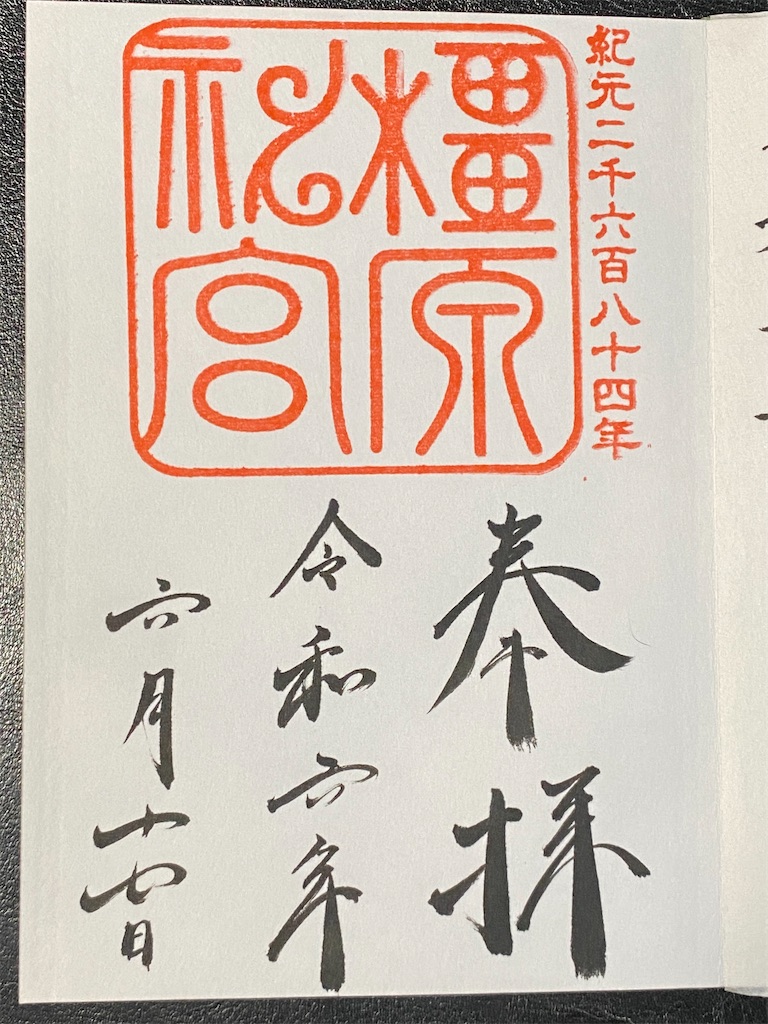 紀元二千六百八十四年
橿原
神宮
奉拝
令和六年
六月十日